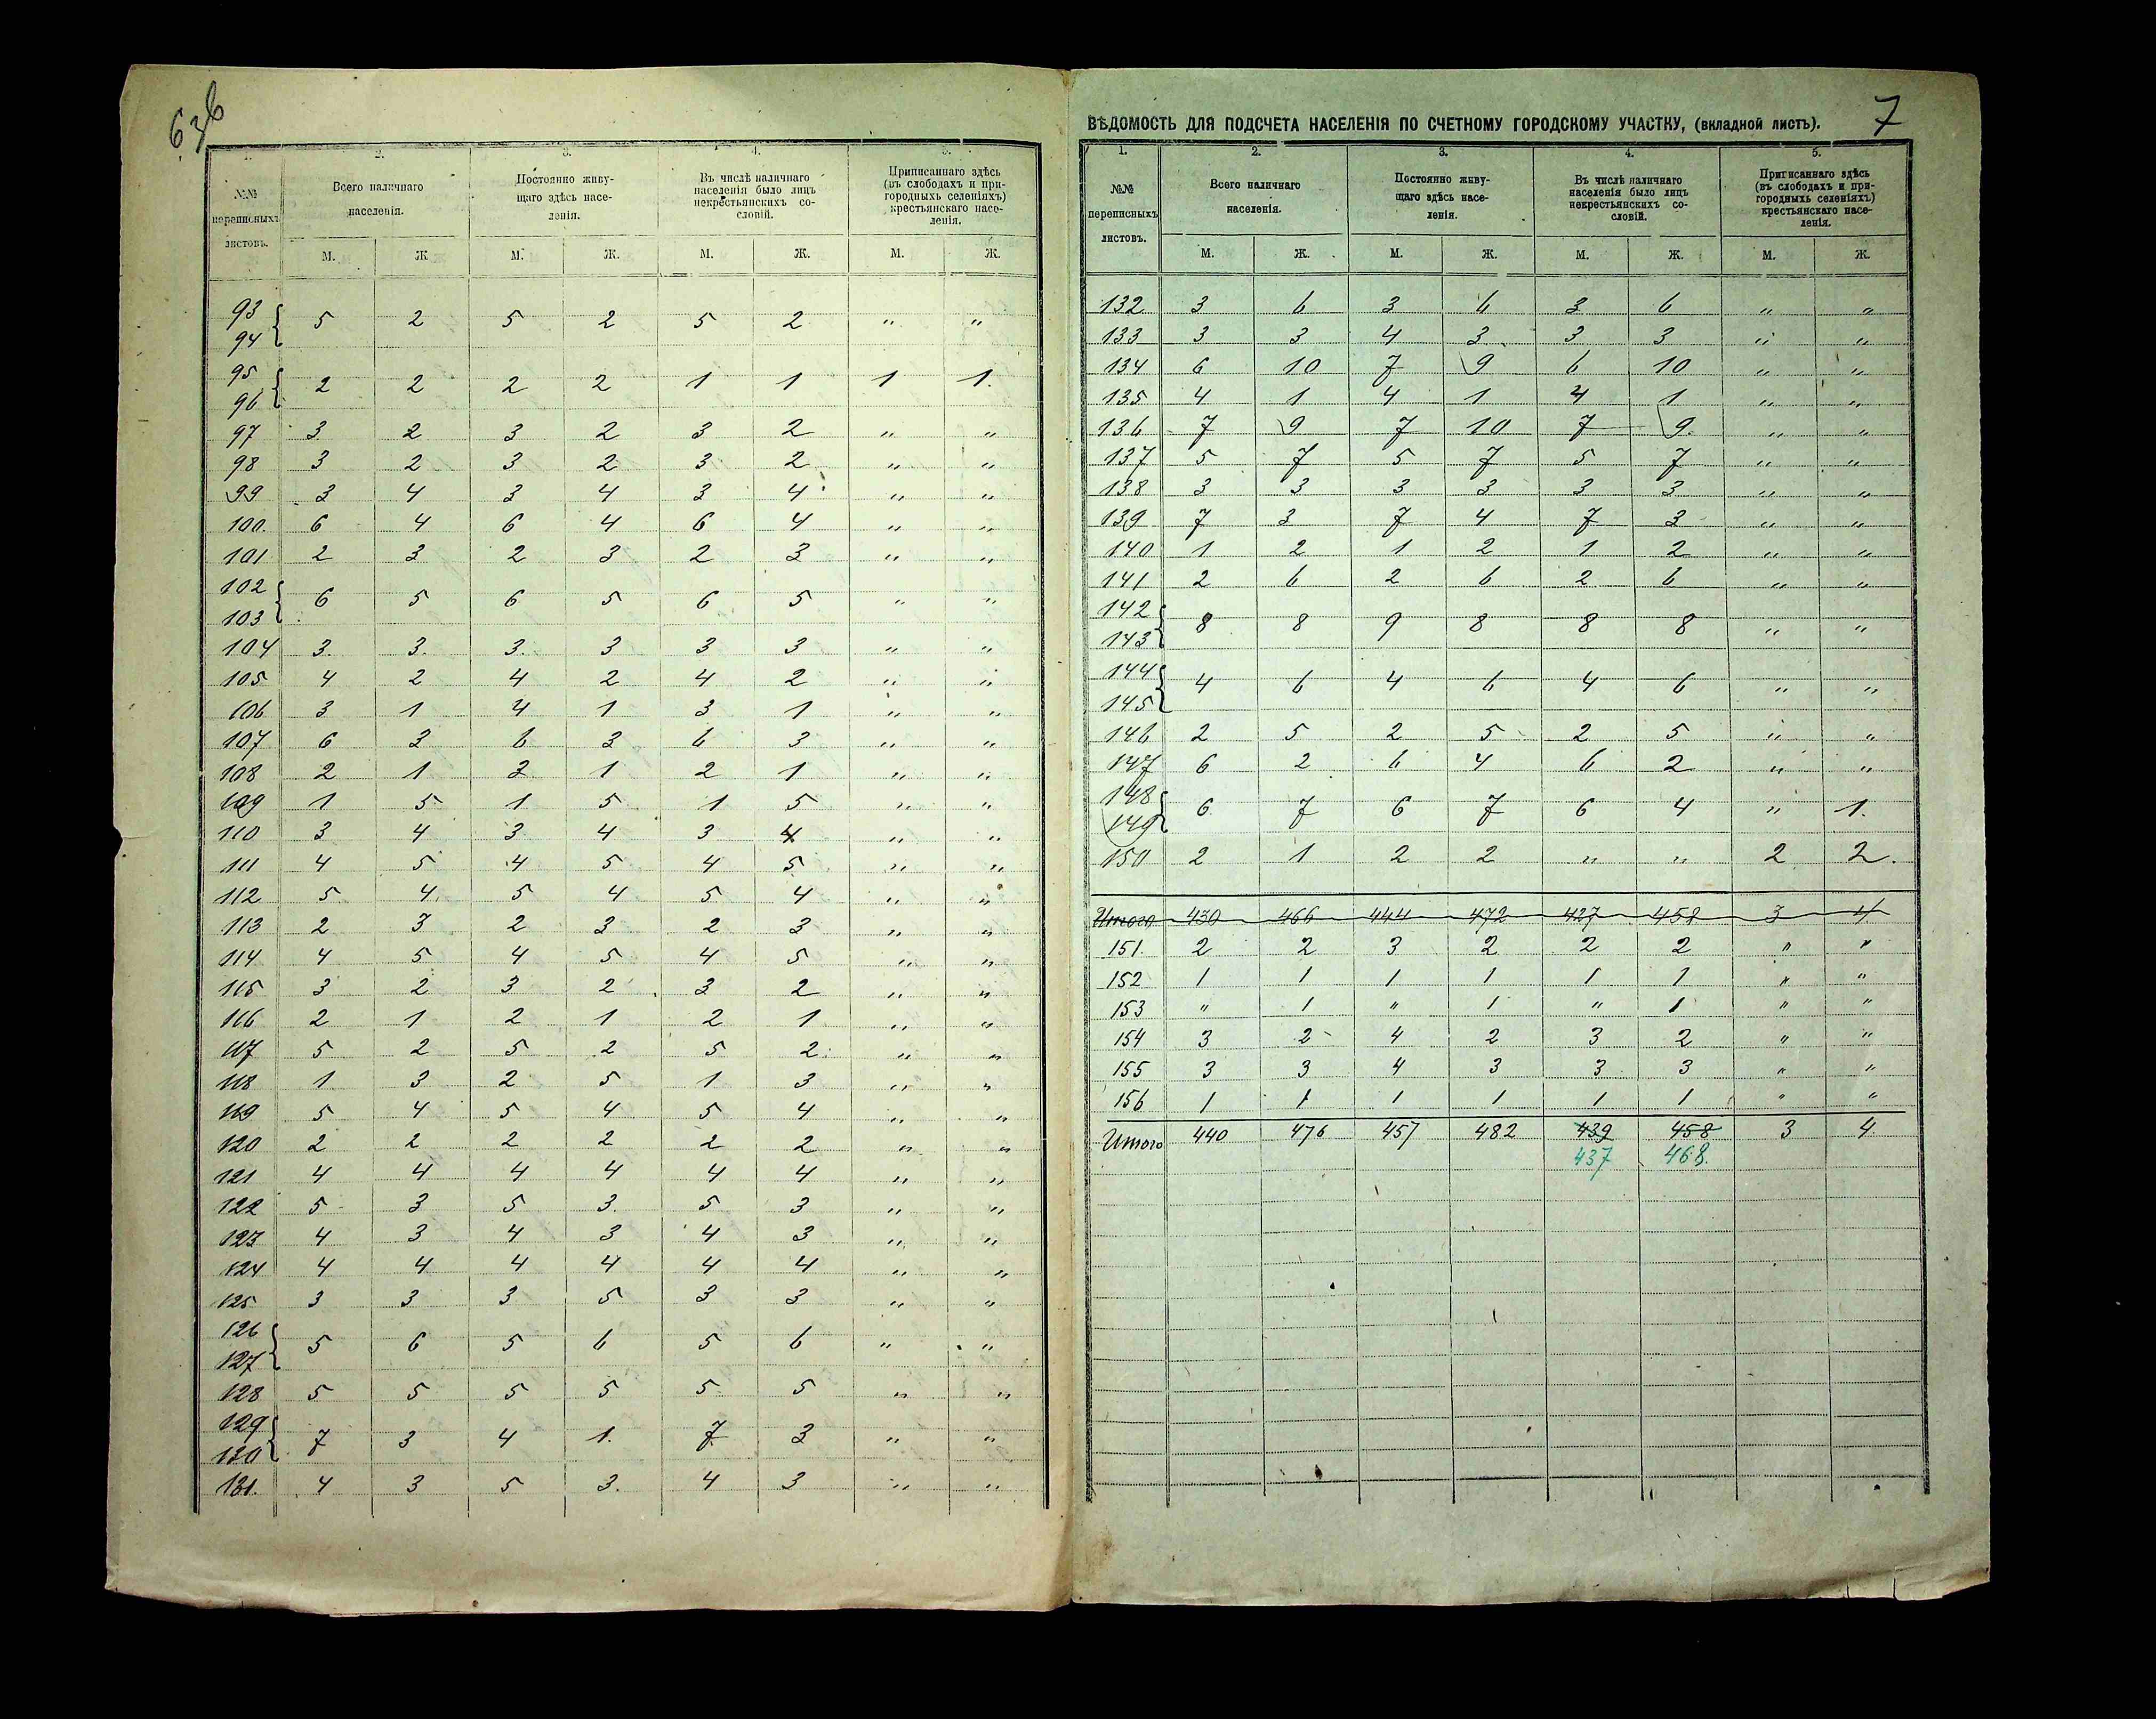 6 зв
1. 2. 3. 4. 5.
№№ переписныхъ листовъ. Всего наличнаго населенія. Постоянно живущаго здѣсь населенія. Въ числѣ наличнаго населенія было лицъ некрестьянскихъ сословій. Приписаннаго здѣсь (въ слободахъ и пригородныхъ селеніяхъ) крестьянскаго населенія.
М. Ж М. Ж. М. Ж. М. Ж.
93 94 { 5 2 5 2 5 2 " "
95 96 { 2 2 2 2 1 1 1 1.
97 3 2 3 2 3 2 " "
98 3 2 3 2 3 2 " "
99 3 4 3 4 3 4 " "
100. 6 4 6 4 6 4 " "
101 2 3 2 3 2 3 " "
102 103 { 6 5 6 5 6 5 " "
104 3. 3. 3. 3 3 3 " "
105 4 2 4 2 4 2 " "
106 3 1 4 1 3 1 " "
107 6 3 6 3 6 3 " "
108 2 1 2 1 2 1 " "
109 1 5 1 5 1 5 " "
110 3 4 3 4 3 4 " "
111 4 5 4 5 4 5 " "
112 5 4 5 4 5 4 " "
113 2 3 2 3 2 3 " "
114 4 5 4 5 4 5 " "
115 3 2 3 2 3 2 " "
116 2 1 2 1 2 1 " "
117 5 2 5 2 5 2 " "
118 1 3 2 5 1 3 " "
119 5 4 5 4 5 4 " "
120 2 2 2 2 2 2 " "
121 4 4 4 4 4 4 " "
122 5 3 5 3. 5 3 " "
123 4 3 4 3 4 3 " "
124 4 4 4 4 4 4 " "
125 3 3 3 5 3 3 " "
126 127 { 5 6 5 6 5 6 " "
128 5 5 5 5 5 5 " "
129 130 { 7 3 4 1. 7 3 " "
131. 4 3 5 3. 4 3 " "
ВѢДОМОСТЬ ДЛЯ ПОДСЧЕТА НАСЕЛЕНІЯ ПО СЧЕТНОМУ ГОРОДСКОМУ УЧАСТКУ, (вкладной листъ). 7
1. 2. 3. 4. 5.
№№ переписныхъ листовъ. Всего наличнаго населенія. Постоянно живущаго здѣсь населенія. Въ числѣ наличнаго населенія было лицъ некрестьянскихъ сословій. Приписаннаго здѣсь (въ слободахъ и пригородныхъ селеніяхъ) крестьянскаго населенія.
М. Ж. М. Ж. М. Ж. М. Ж.
132 3 6 3 6 3 6 " "
133 3 3 4 3 3 3 " "
134 6 10 7 9 6 10 " "
135 4 1 4 1 4 1 " "
136 7 9 7 10 7 9. " "
137 5 7 5 7 5 7 " "
138 3 3 3 3 3 3 " "
139 7 3 7 4 7 3 " "
140 1 2 1 2 1 2 " "
141 2 6 2 6 2 6 " "
142 143 { 8 8 9 8 8 8 " "
144 145 { 4 6 4 6 4 6 " "
146 2 5 2 5 2 5 " "
147 6 2 6 4 6 2 " "
148 149 { 6 7 6 7 6 4 " 1.
150 2 1 2 2 " " 2 2.
Итого 430 466 444 472 427 458 3 4
151. 2 2 3 2 2 2 " "
152 1 1 1 1 1 1 " "
153 " 1 " 1 " 1 " "
154 3 2 4 2 3 2 " "
155 3 3 4 3 3 3 " "
156 1 1 1 1 1 1 " "
Итого 440 476 457 482 439 458 3 4
437 468.